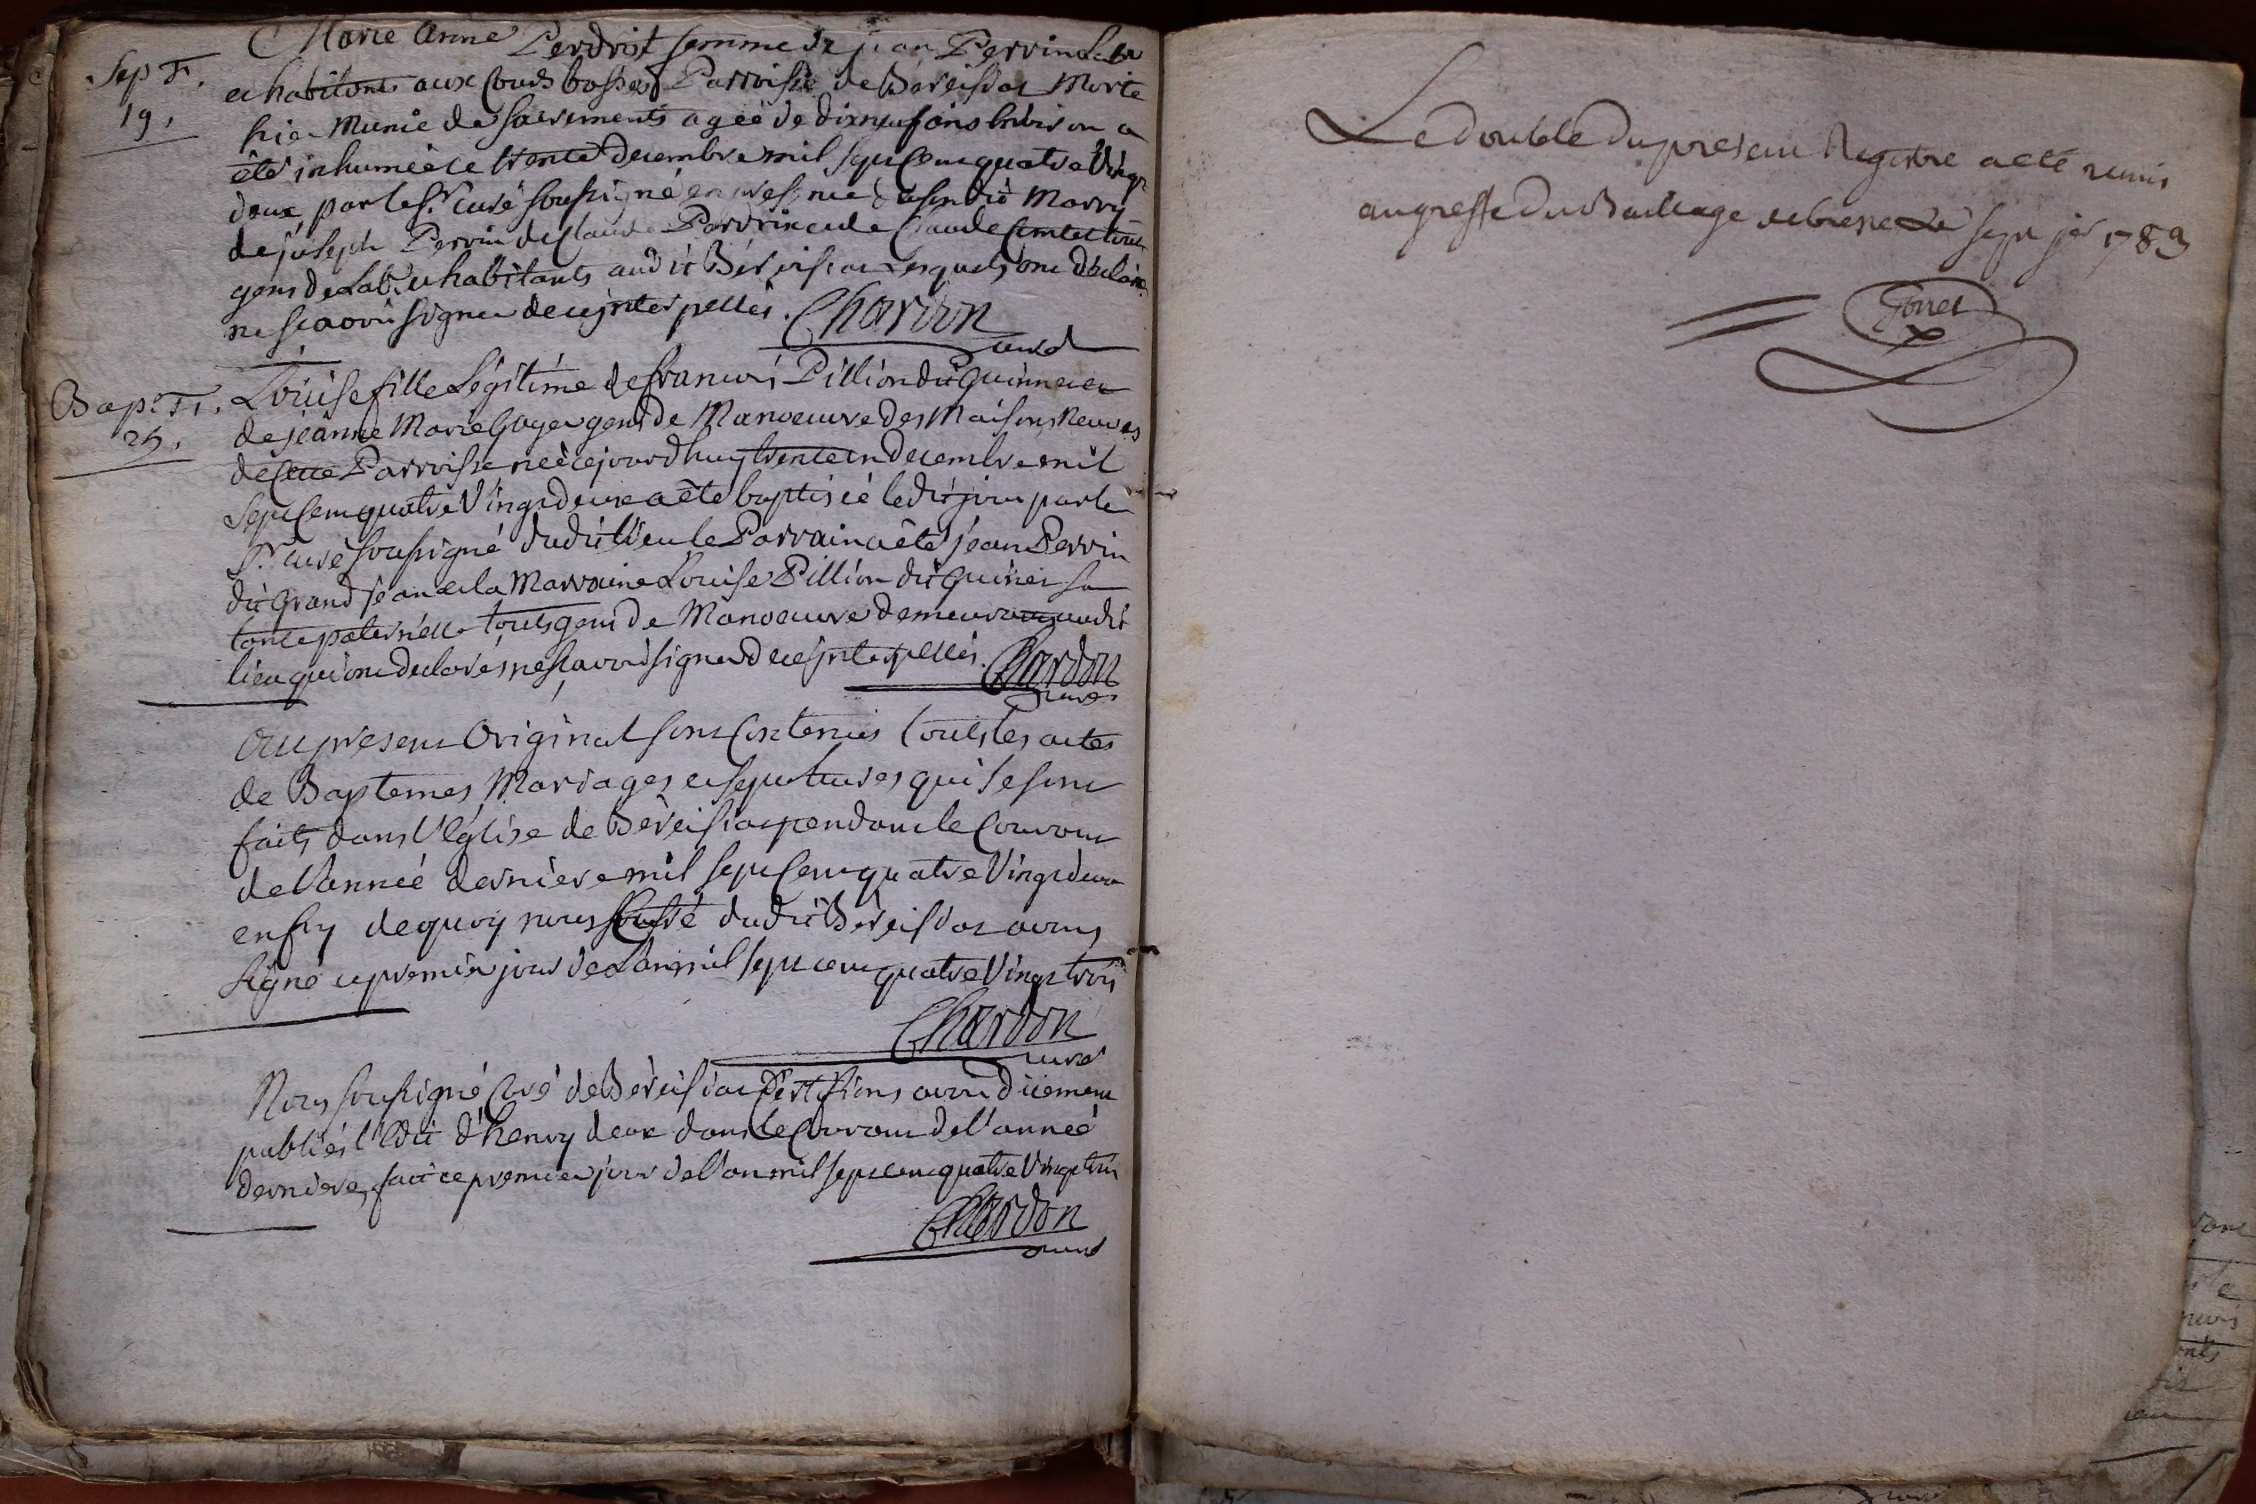 Marie Anne Perdrix femme de jean Perrin Lab.r
Sept.
et habitants aux Cours basses Parroisse de Béréisiat Morte
19.
hier Munie de sacrements agée de dixneuf ans environ a
été inhumée le trente decembre mil sept Cent quatre Vingt
deux par le S.r curé soussigné en presence de sondit Marry
de joseph Perrin de Claude Perrin et de Claude tous
gens de Lab.r et habitants audit Béréisiat Lesquels ont déclaré
ne sçavoir signer de ce jnterpellés. Chardon
curé
Bapt.
Louise fille Légitime de francois Pillion dit Guinnet et
25.
de jeanne Marie Goyet gens de Manoeuvre des Maisons Neuves
de Cette Parroisse née cejourdhuy trente un decembre mil
Sept Cent quatre Vingt deux a été baptisée ledit jour par le
S.r curé soussigné dudit lieu le Parrain a été jean Perrin
dit grand jean et la Marraine Louise Pillion dit Guinet sa
tante paternelle touts gens de Manoeuvre demeurant audit
lieu qui ont declarés ne sçavoir signer de ce jnterpellés. Chardon
curé
Au present Original sont Contenus touts les actes
de Baptemes Mariages et sepultures qui se sont
faits dans l'Église de Béréisiat pendant le Courant
de l'année derniere mil sept Cent quatre Vingt deux
en foy de quoy nous Curé dudit Béréisiat avons
signé ce premier jour de L'an mil sept cent quatre Vingt trois
Chardon
curé
Nous soussigné Curé de Béréisiat Certifions avoir duement
publiés l'Edit d'henry deux dans le Courant de l'année
derniere, fait ce premier jour de l'an mil sept cent quatre Vingt trois
Chardon
curé
Le double du present Registre a eté remis
au greffe du Bailliage de bresse Le sept j.er 1783